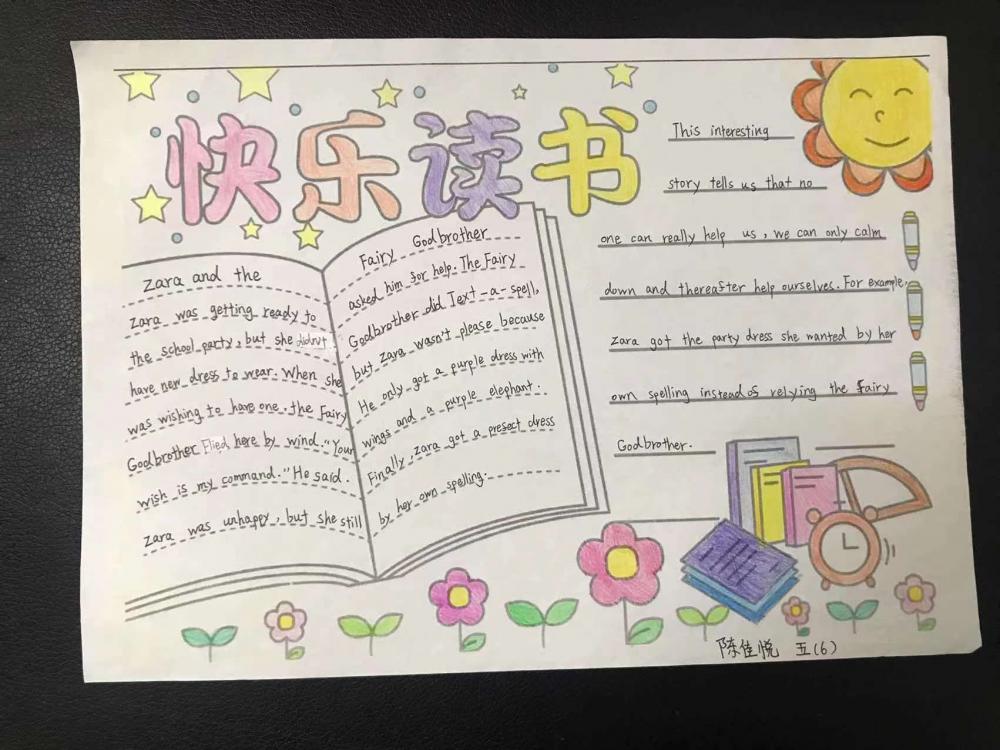 快乐读书
Zara and the
Zara was getting ready to
the school party, but she didn't
have new dress to wear. When she
was wishing to have one, the Fairy
Godbrother Flied here by wind. "Your
wish is my command." He said.
Zara was unhappy, but she still
Fairy Godbrother
asked him for help. The Fairy
Godbrother did Text-a-spell,
but Zara wasn't please because
He only got a purple dress with
wings and a purple elephant.
Finally, Zara got a presect dress
by her own spelling.
This interesting
story tells us that no
one can really help us, we can only calm
down and thereafter help ourselves. For example,
Zara got the party dress she wanted by her
own spelling instead of relying the Fairy
Godbrother.
陈佳悦 五(6)